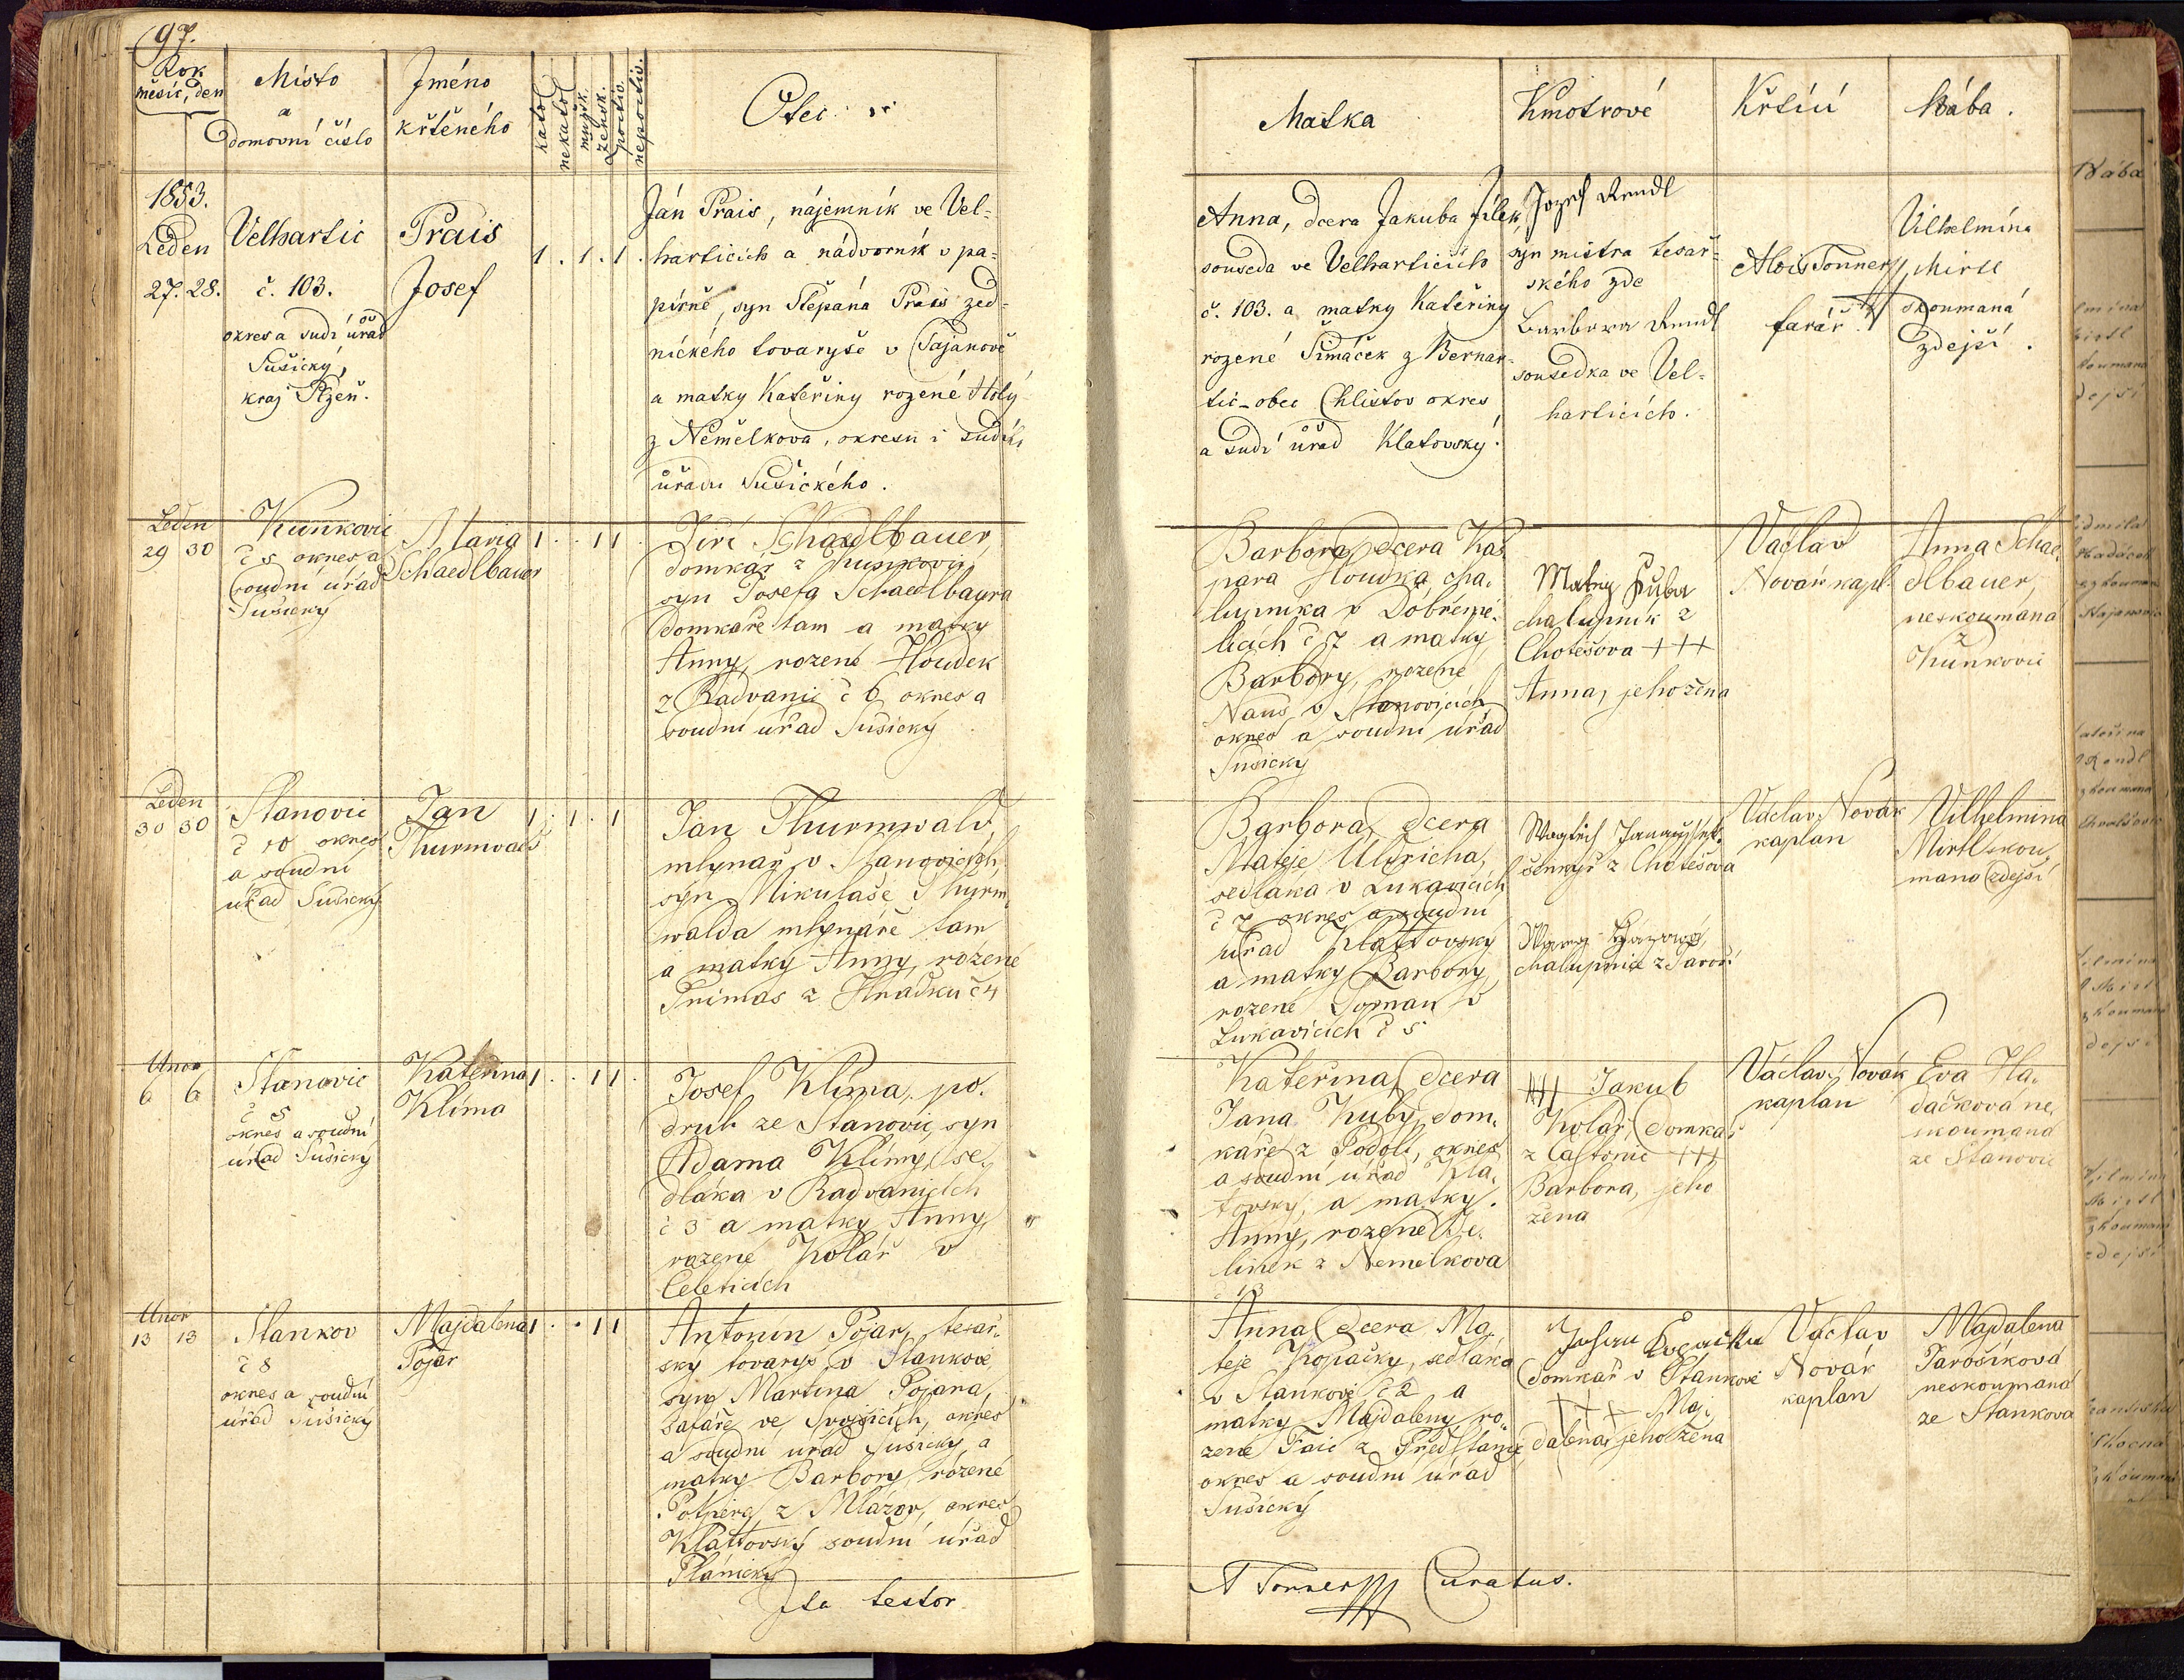 97.
Rok
měsíc, den
Místo
a
domovní číslo
Jméno
křtěného
katol
nekatol
mužsk.
žensk.
poctiv.
nepoctiv.
Otec
Matka
Kmotrové
Křtící
Bába.
1853.
Leden
27. 28.
Velhartic
č. 103.
okres a sudí úřad
Sušický,
kraj Plzeň.
Prais
Josef
1 . 1 . 1 .
Ján Prais, nájemník ve Vel=
harticích a nádvorník v pa=
pírně, syn Štěpána Prais zed=
nického tovaryše v Tajanově
a matky Kateřiny rozené Holý
z Němčlkova, okresu i sudího
úřadu Sušického.
Anna, dcera Jakuba Jílek,
souseda ve Velharticích
č. 103. a matky Kateřiny
rozené Šimáček z Bernar=
tic-obec Chlistov okres
a sudí úřad Klatovský.
Jozef Rendl
syn mistra tesař=
ského zde
Barbora Rendl
sousedka ve Vel=
harticích.
Alois Tonner
farář.
Vilhelmína
Mirtl
zkoumaná
zdejší.
Leden
29 30
Kunkovic
č 5 okres a
soudní úřad
Sušický
Maria
Schaedlbauer
1 . . 1 1
Jiří Schaedlbauer
domkář z Kunkovic,
syn Josefa Schaedlbayra
domkaře tam a matky
Anny, rozené Houdek
z Radvanic č 6 okres a
soudní úřad Sušický
Barbora, dcera Kaš
para Houdka, cha.
lupníka v Dobřemě.
licích č 7 a matky
Barbory, rozené
Naus v Stanovicích
okres a soudní úřad
Sušický
Matěj Kuba
chalupník z
Chotěšova +++
Anna, jeho žena
Václav
Novák kapl.
Anna Schae
dlbauer,
neskoumaná
z
Kunkovic
Leden
30 30
Stanovic
č 10 okres
a soudní
úřad Sušický
Jan
Thurmwald
1 . 1 . 1
Jan Thurmwald,
mlynář v Stanovicích,
syn Mikulaše Thurm
walda mlynáře tam
a matky Anny, rozené
Primas z Hradku č 4
Barbora, dcera
Mateje Ulricha,
sedláka v Lukavicích
č 7 okres a soudní
úřad Klattovský
a matky Barbory,
rozené Toman v
Lukavicích č 5
šenkýř z Chotěšova
chalupnice z
Václav Novák
kaplan
Vilhelmina
Mirtl skou
maná zdejší
Unor
6 6
Stanovic
č 5
okres a soudní
úřad Sušický
Kateřina
Klíma
1 . . 1 1
Josef Klíma, po.
druh ze Stanovic, syn
Adama Klímy, se.
dláka v Radvanicích
č 3 a matky Anny,
rozené Kolář v
Čeleticích
Kateřina, dcera
Jana Kuby, dom.
káře z Podolí, okres
a soudní úřad Kla.
tovský, a matky
Anny, rozené Je.
linek z Nemelkova
č 13
+++ Jakub
Kolář, domkář
z Častonic +++
Barbora, jeho
žena
Václav Novák
kaplan
Eva Hla.
dačková ne.
skoumaná
ze Stanovic
Unor
13 13
Stankov
č 8
okres a soudní
úřad Sušický
Majdalena
Pojar
1 . . 1 1
Antonín Pojar, tesař.
ský tovaryš v Stankově,
syn Martina Pojara,
šafáře ve Svojšicích, okres
a soudní úřad Sušický, a
matky Barbory, rozené
z Mlázov, okres
Klattovský soudní úřad
Plánický
Anna, dcera Ma.
teje Kopačky, sedláka
v Stankově č 2 a
matky Majdaleny, ro.
zené Faic z Předslanic,
okres a soudní úřad
Sušický
Johan Kopačka
domkář v Stankově
+++ Maj.
dalena, jeho žena
Václav
Novák
kaplan
Majdalena
Jarošíková
neskoumaná
ze Stankova
Ita testor
A Tonner Curatus.